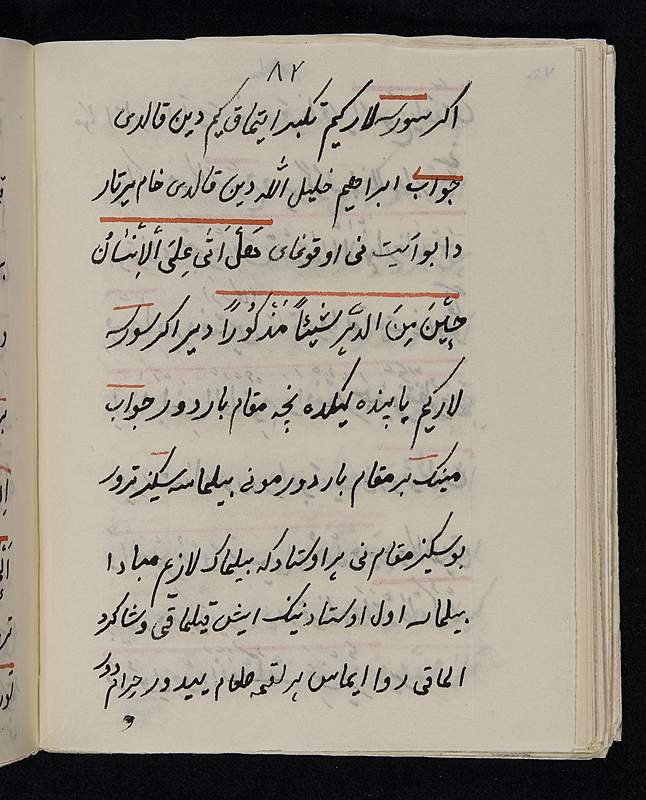 ٨٢
اکر سورسه لار کیم تکبر ایتماق کیم دین قالدی
جواب ابراهیم خلیل الله دین قالدی خام یرتار
دا بو آیت نی اوقوغای هَلْ اَتٰی عَلَی الْاِنْسَانِ
حِیْنٌ مِنَ الدَّهْرِ شَیْئاً مَذْکُوْراً دیر اکر سورسه
لار کیم یا پنده کیلده نچه مقام بار دور جواب
مینک بر مقام بار دور مونی بیلماسه سکیز ترور
بو سکیز مقام نی هر اوستاد که بیلماک لازم مبادا
بیلماسه اول اوستاد نینک ایش قیلماقی و شاکرد
الماقی روا ایماس هر لقمه طعام ییدور حرام دور
و